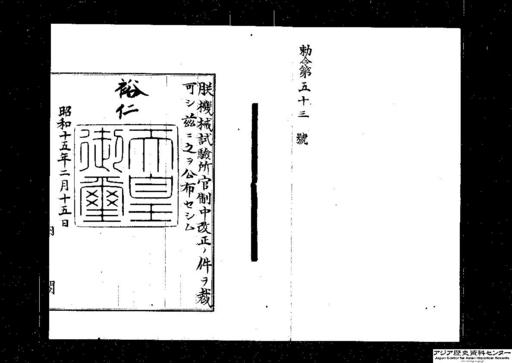 勅令第五十三號
朕機械試験所官制中改正ノ件ヲ裁
可シ茲ニ之ヲ公布セシム
裕仁
天皇
御璽
昭和十五年二月十五日
内閣
アジア歴史資料センター
Japan Center for Asian Historical Records